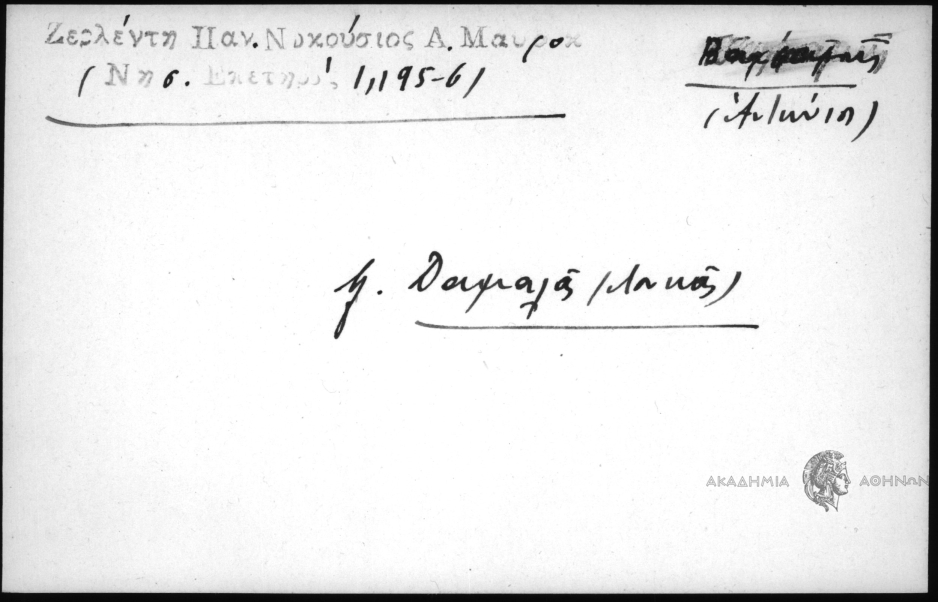 Ζερλέντη Παν. Νικούσιος Α. Μαυροκ
(Νησ. Επετηρίς, 1,195-6)
(Ἀντώνιος)
Δαμαλᾶς (Λουκᾶς)
ΑΚΑΔΗΜΙΑ ΑΘΗΝΩΝ